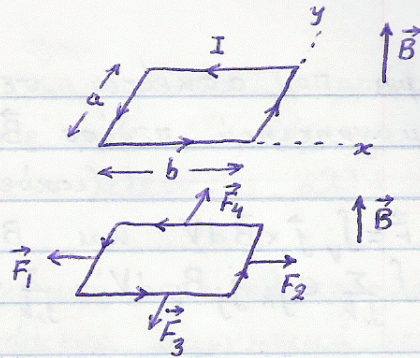 y
I
B⃗
a
x
b
F⃗₄
B⃗
F⃗₁
F⃗₂
F⃗₃